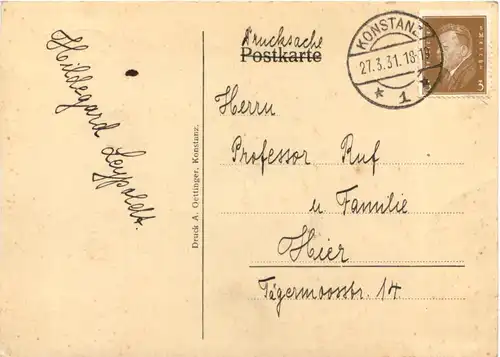 Hildegard Leypoldt.
Drucksache
Postkarte
KONSTANZ
27.3.31.18-19
* 1 *
3
Herrn
Professor Ruf
u Familie
Hier
Jägermoosstr. 14
Druck A. Oettinger, Konstanz.